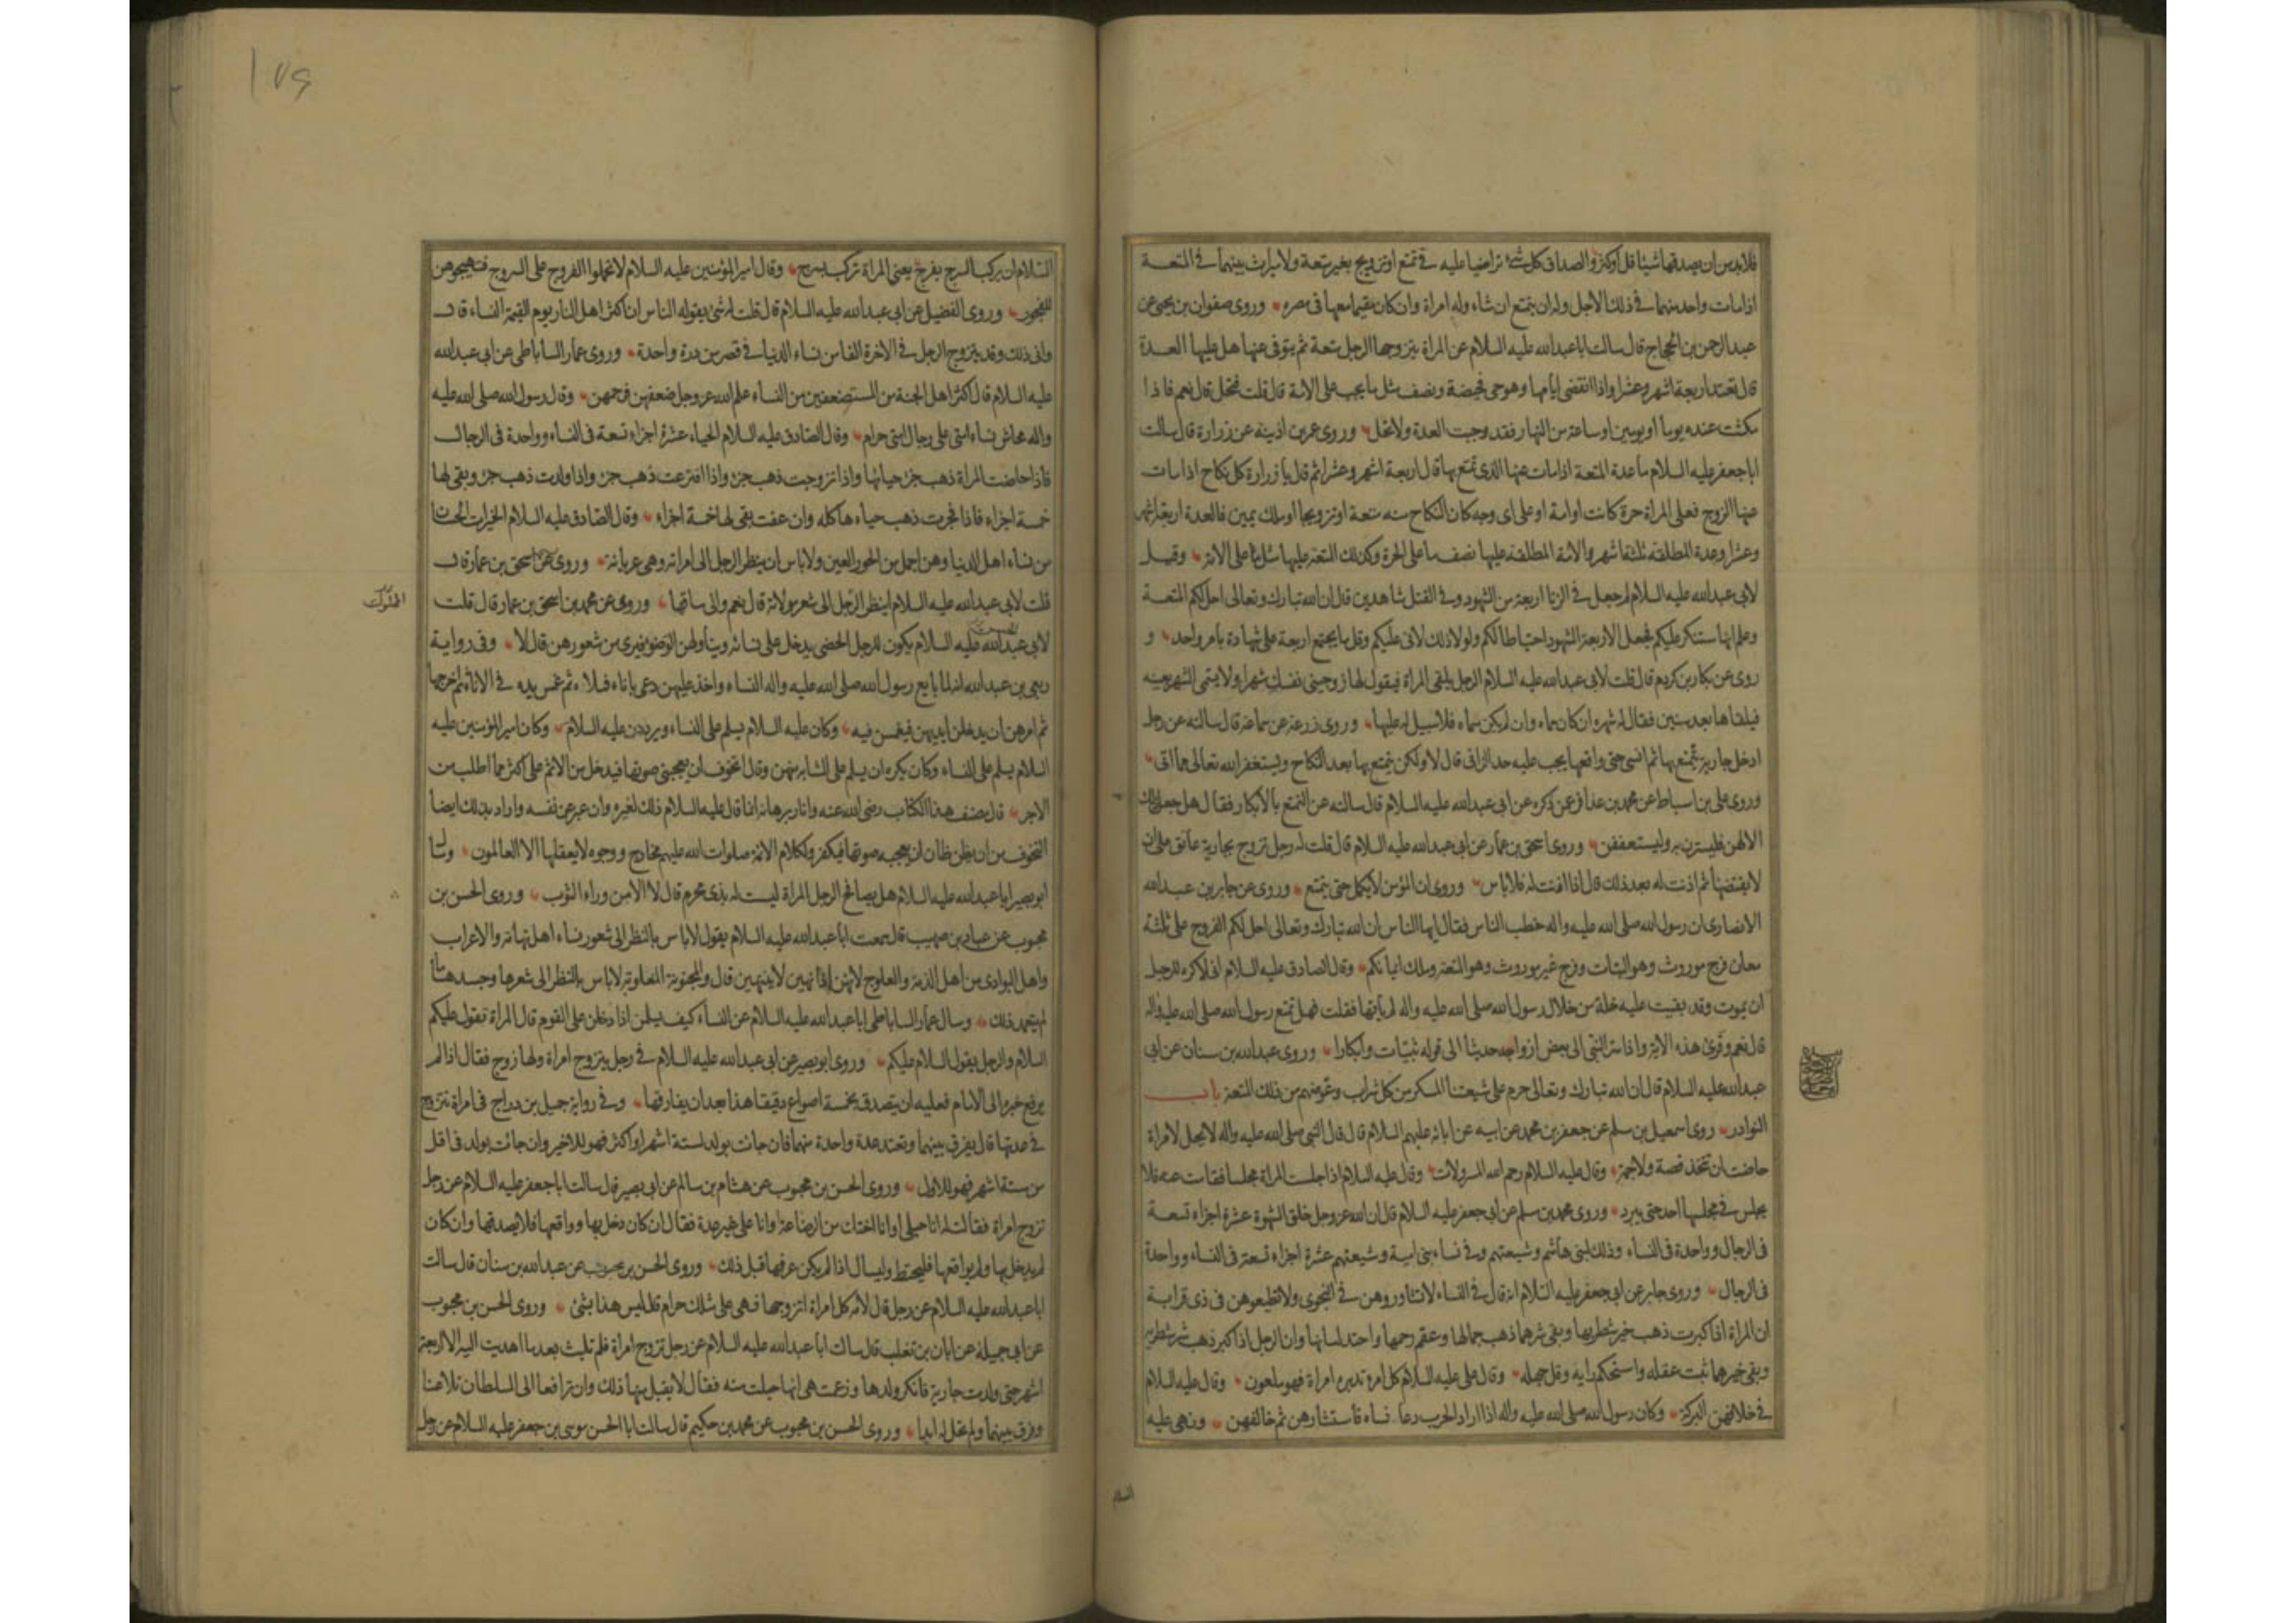 فلابد من ان يصدقها شيئا قل او كثر والصداق كل شئ تراضيا عليه فى تمتع او تزويج بغير متعة ولا ميراث بينهما فى المتعة
اذا مات واحد منهما فى ذلك الاجل وله ان يتمتع ان شاء وله امراة وان كان مقيما معها فى مصره وروى صفوان بن يحيى عن
عبد الرحمن بن الحجاج قال سالت ابا عبد الله عليه السلام عن المراة يتزوجها الرجل متعة ثم يتوفى عنها هل عليها العدة
قال تعتد اربعة اشهر وعشرا واذا انقضى ايامها وهو حى فحيضة ونصف مثل ما يجب على الامة قال قلت فتحل قال نعم فاذا
مكثت عنده يوما او يومين او ساعة من النهار فقد وجبت العدة ولا تحل وروى عمر بن اذينه عن زرارة قال سالت
ابا جعفر عليه السلام ما عدة المتعة اذا مات عنها الذى تمتع بها قال اربعة اشهر وعشرا ثم قال يا زرارة كل نكاح اذا مات
عنها الزوج فعلى المراة حرة كانت او امة او على اى وجه كان النكاح منه متعة او تزويجا او ملك يمين فالعدة اربعة اشهر
وعشرا وعدة المطلقة ثلثة اشهر والامة المطلقة عليها نصف ما على الحرة وكذلك المتعة عليها مثل ما على الامة وقيل
لابى عبد الله عليه السلام لم جعل فى الزنا اربعة من الشهود وفى القتل شاهدين قال ان الله تبارك وتعالى احل لكم المتعة
وعلم انها ستنكر عليكم فجعل الاربعة الشهود احتياطا لكم ولولا ذلك لاتى عليكم وقل ما يجتمع اربعة على شهادة بامر واحد و
روى عن بكار بن كردم قال قلت لابى عبد الله عليه السلام الرجل يلقى المراة فيقول لها زوجينى نفسك شهرا ولا يسمى الشهر بعينه
فيلقاها بعد سنين فقال له شهره ان كان سماه وان لم يكن سماه فلا سبيل له عليها وروى زرعة عن سماعة قال سالته عن رجل
ادخل جارية يتمتع بها ثم انسى حتى واقعها يجب عليه حد الزانى قال لا ولكن يتمتع بها بعد النكاح ويستغفر الله تعالى مما اتى
وروى على بن اسباط عن محمد بن عذافر عن ذكره عن ابى عبد الله عليه السلام قال سالته عن التمتع بالابكار فقال هل جعل ذلك
الا لهن فليستترن به وليستعففن وروى اسحق بن عمار عن ابى عبد الله عليه السلام قال قلت له رجل تزوج بجارية عاتق على ان
لا يفتضها ثم اذنت له بعد ذلك قال اذا اذنت له فلا باس وروى ان المؤمن لا يكمل حتى يتمتع وروى عن جابر بن عبد الله
الانصارى ان رسول الله صلى الله عليه واله خطب الناس فقال ايها الناس ان الله تبارك وتعالى احل لكم الفروج على ثلثة
معان فرج موروث وهو البتات وفرج غير موروث وهو المتعة وملك ايمانكم وقال الصادق عليه السلام انى لاكره للرجل
ان يموت وقد بقيت عليه خلة من خلال رسول الله صلى الله عليه واله لم ياتها فقلت فهل تمتع رسول الله صلى الله عليه واله
قال نعم وقرئ هذه الاية واذ اسر النبى الى بعض ازواجه حديثا الى قوله ثيبات وابكارا وروى عبد الله بن سنان عن ابى
عبد الله عليه السلام قال ان الله تبارك وتعالى حرم على شيعتنا المسكر من كل شراب وعوضهم من ذلك المتعة باب
النوادر روى اسمعيل بن مسلم عن جعفر بن محمد عن ابيه عن ابائه عليهم السلام قال قال النبى صلى الله عليه واله لا يحل لامراة
حاضت ان تتخذ قصة ولا جمة وقال عليه السلام رحم الله المسرولات وقال عليه السلام اذا جلست المراة مجلسا فقامت عنه فلا
يجلس فى مجلسها احد حتى يبرد وروى محمد بن مسلم عن ابى جعفر عليه السلام قال ان الله عز وجل خلق الشهوة عشرة اجزاء تسعة
فى الرجال وواحدة فى النساء وذلك لبنى هاشم وشيعتهم وفى نساء بنى امية وشيعتهم عشرة اجزاء تسعة فى النساء وواحدة
فى الرجال وروى جابر عن ابى جعفر عليه السلام انه قال فى النساء لا تشاوروهن فى النجوى ولا تطيعوهن فى ذى قرابة
ان المراة اذا كبرت ذهب خير شطريها وبقى شرهما ذهب جمالها وعقم رحمها واحتد لسانها وان الرجل اذا كبر ذهب شر شطريه
وبقى خيرهما ثبت عقله واستحكم رايه وقل جهله وقال على عليه السلام كل امرء تدبره امراة فهو ملعون وقال عليه السلام
فى خلافهن البركة وكان رسول الله صلى الله عليه واله اذا اراد الحرب دعا نساءه فاستشارهن ثم خالفهن ونهى عليه
السلام
السلام ان يركب السرج بفرج يعنى المراة تركب بسرج وقال امير المؤمنين عليه السلام لا تحملوا الفروج على السروج فتهيجوهن
للفجور وروى الفضيل عن ابى عبد الله عليه السلام قال قلت له شئ يقوله الناس ان اكثر اهل النار يوم القيمة النساء قال
وانى ذلك وقد يتزوج الرجل فى الاخرة الفا من نساء الدنيا فى قصر من درة واحدة وروى عمار الساباطى عن ابى عبد الله
عليه السلام قال اكثر اهل الجنة من المستضعفين من النساء علم الله عز وجل ضعفهن فرحمهن وقال رسول الله صلى الله عليه
واله محاش نساء امتى على رجال امتى حرام وقال الصادق عليه السلام الحياء عشرة اجزاء تسعة فى النساء وواحدة فى الرجال
فاذا حاضت المراة ذهب جزء حيائها واذا تزوجت ذهب جزء واذا افترعت ذهب جزء واذا ولدت ذهب جزء وبقى لها
خمسة اجزاء فاذا فجرت ذهب حياءها كله وان عفت بقى لها خمسة اجزاء وقال الصادق عليه السلام الخيرات الحسان
من نساء اهل الدنيا وهن اجمل من الحور العين ولا باس ان ينظر الرجل الى امراته وهى عريانة وروى عن اسحق بن عمار قال
قلت لابى عبد الله عليه السلام اينظر الرجل الى شعر مولاته قال نعم والى ساقها وروى عن محمد بن اسحق بن عمار قال قلت
المملوك
لابى عبد الله عليه السلام يكون للرجل الخصى يدخل على نسائه ويناولهن الوضوء فيرى من شعورهن قال لا وفى رواية
ربعى بن عبد الله انه لما بايع رسول الله صلى الله عليه واله النساء واخذ عليهن دعى باناء فملاءه ثم غمس يده فى الاناء ثم اخرجها
ثم امرهن ان يدخلن ايديهن فيغمسن فيه وكان عليه السلام يسلم على النساء ويرددن عليه السلام وكان امير المؤمنين عليه
السلام يسلم على النساء وكان يكره ان يسلم على الشابة منهن وقال اتخوف ان يعجبنى صوتها فيدخل من الاثم على اكثر مما اطلب من
الاجر قال مصنف هذا الكتاب رضى الله عنه انما قال عليه السلام ذلك لغيره وان عبر عن نفسه واراد بذلك ايضا
التخوف من ان يظن ظان انه يعجبه صوتها فيكفر ولكلام الائمة صلوات الله عليهم مخارج ووجوه لا يعقلها الا العالمون وسال
ابو بصير ابا عبد الله عليه السلام هل يصافح الرجل المراة ليست له بذى محرم قال لا الا من وراء الثوب وروى الحسن بن
محبوب عن عباد بن صهيب قال سمعت ابا عبد الله عليه السلام يقول لا باس بالنظر الى شعور نساء اهل تهامة والاعراب
واهل البوادى من اهل الذمة والعلوج لانهن اذا نهين لا ينتهين قال والمجنونة المغلوبة لا باس بالنظر الى شعرها وجسدها ما
لم يتعمد ذلك وسال عمار الساباطى ابا عبد الله عليه السلام عن النساء كيف يسلمن اذا دخلن على القوم قال المراة تقول عليكم
السلام والرجل يقول السلام عليكم وروى ابو بصير عن ابى عبد الله عليه السلام فى رجل يتزوج امراة ولها زوج فقال اذا لم
يرفع خبره الى الامام فعليه ان يتصدق بخمسة اصواع دقيقا هذا بعد ان يفارقها وفى رواية جميل بن دراج فى امراة تتزوج
فى عدتها قال يفرق بينهما وتعتد عدة واحدة منهما فان جائت بولد لستة اشهر او اكثر فهو للاخير وان جائت بولد فى اقل
من ستة اشهر فهو للاول وروى الحسن بن محبوب عن هشام بن سالم عن ابى بصير قال سالت ابا جعفر عليه السلام عن رجل
تزوج امراة فقالت له انا حبلى او انا اختك من الرضاعة او انا على غير عدة فقال ان كان دخل بها وواقعها فلا يصدقها وان كان
لم يدخل بها ولم يواقعها فليحتط وليسال اذا لم يكن عرفها قبل ذلك وروى الحسن بن محبوب عن عبد الله بن سنان قال سالت
ابا عبد الله عليه السلام عن رجل قال لامه كل امراة اتزوجها فهى على مثلك حرام قال ليس هذا بشئ وروى الحسن بن محبوب
عن ابى جميلة عن ابان بن تغلب قال سالت ابا عبد الله عليه السلام عن رجل تزوج امراة فلم تلبث بعد ما اهديت اليه الا اربعة
اشهر حتى ولدت جارية فانكر ولدها وزعمت هى انها حبلت منه فقال لا يقبل منها ذلك وان ترافعا الى السلطان تلاعنا
وفرق بينهما ولم تحل له ابدا وروى الحسن بن محبوب عن محمد بن حكيم قال سالت ابا الحسن موسى بن جعفر عليه السلام عن رجل